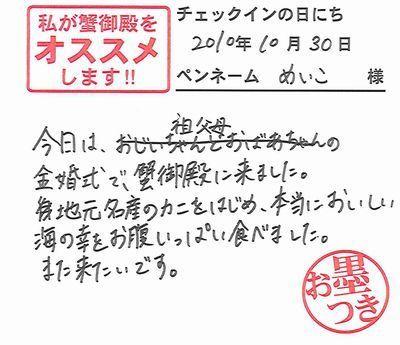 私が蟹御殿を
オススメ
します!!
チェックインの日にち
2010年10月30日
ペンネーム めいこ 様
祖父母
今日は、おじいちゃんとおばあちゃんの
金婚式で、蟹御殿に来ました。
後地元名産のカニをはじめ、本当においしい
海の幸をお腹いっぱい食べました。
また来たいです。
お墨
つき